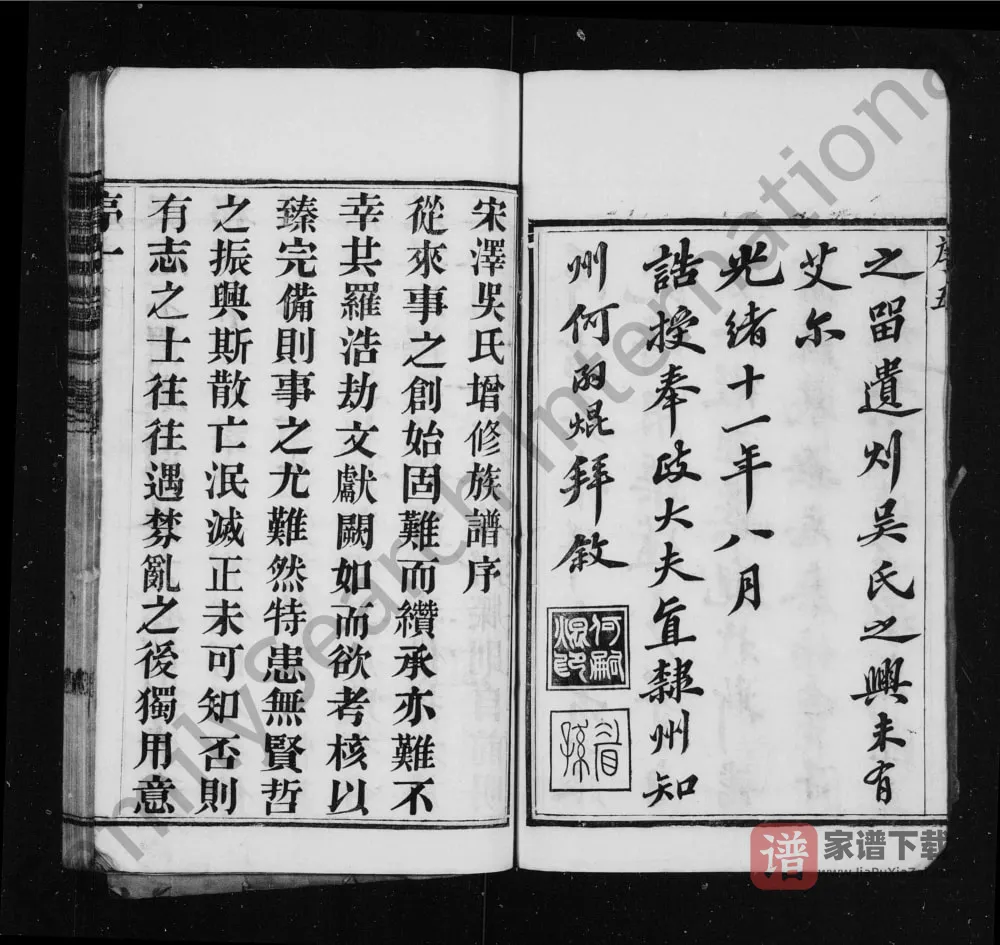 之留遺刋吳氏之興未有
艾尒
光緒十一年八月
誥授奉政大夫直隸州知
州何嗣焜拜敘
何嗣焜印
眉孫
序五
宋澤吳氏增修族譜序
從來事之創始固難而纘承亦難不
幸其罹浩劫文獻闕如而欲考核以
臻完備則事之尤難然特患無賢哲
之振興斯散亡泯滅正未可知否則
有志之士往往遇棼亂之後獨用意
序一
milySearch International
谱 家谱下载